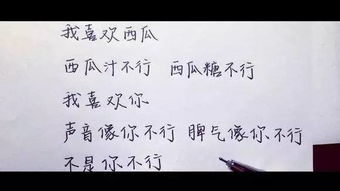 我喜欢西瓜
西瓜汁不行 西瓜糖不行
我喜欢你
声音像你不行 脾气像你不行
不是你不行